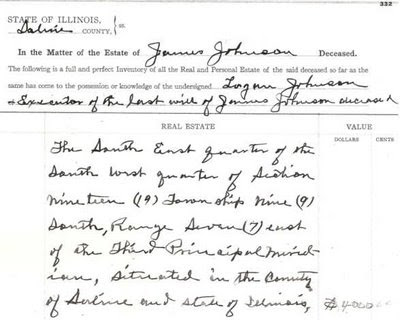 332
STATE OF ILLINOIS,
Saline COUNTY, } ss.
In the Matter of the Estate of James Johnson Deceased.
The following is a full and perfect Inventory of all the Real and Personal Estate of the said deceased so far as the
same has come to the possession or knowledge of the undersigned Logan Johnson
Executor of the last will of James Johnson deceased
REAL ESTATE VALUE
DOLLARS CENTS
The South East quarter of the
South West quarter of Section
Nineteen (19) Township Nine (9)
South, Range Seven (7) east
of the Third Principal Merid-
ian, situated in the County
of Saline and state of Illinois, $4000